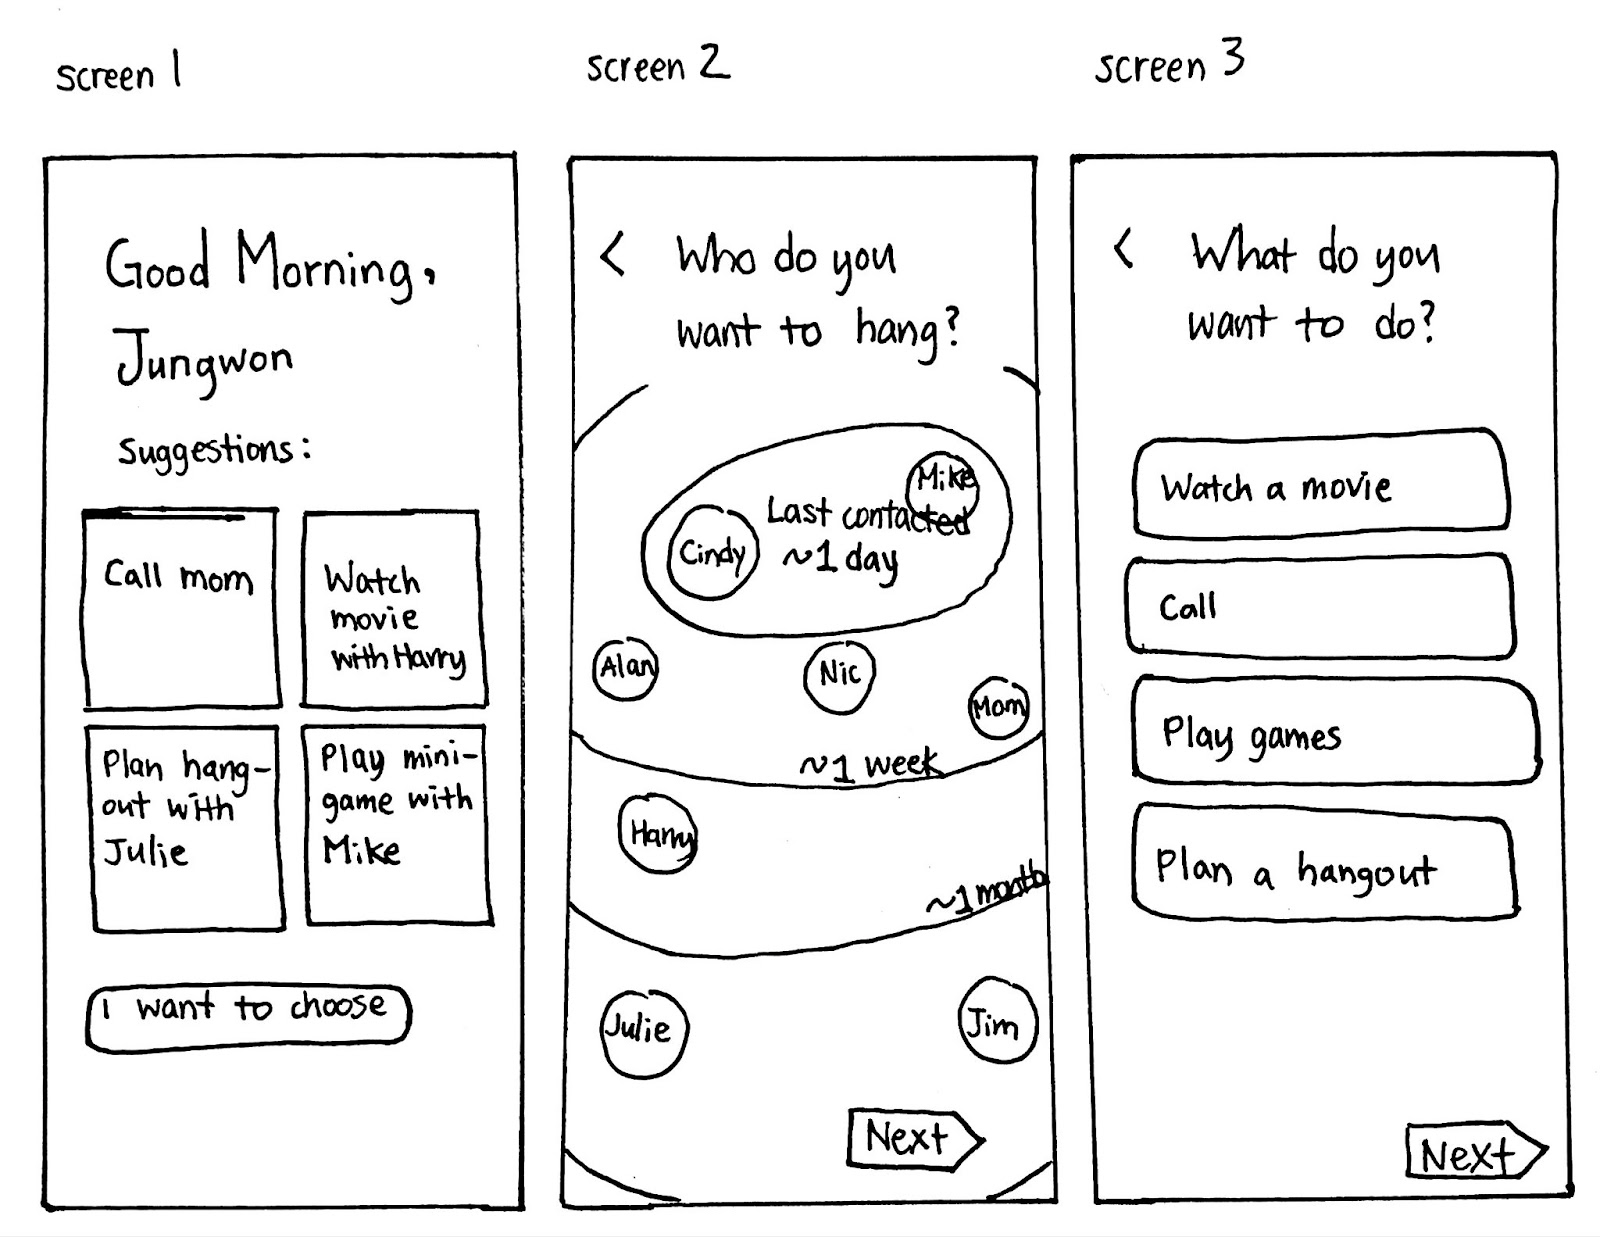 screen 1
Good Morning,
Jungwon
Suggestions:
Call mom
Watch
movie
with Harry
Plan hang-
out with
Julie
Play mini-
game with
Mike
I want to choose
screen 2
< Who do you
want to hang?
Mike
Last contacted
Cindy
~1 day
Alan
Nic
Mom
~1 week
Harry
~1 month
Julie
Jim
Next
screen 3
< What do you
want to do?
Watch a movie
Call
Play games
Plan a hangout
Next